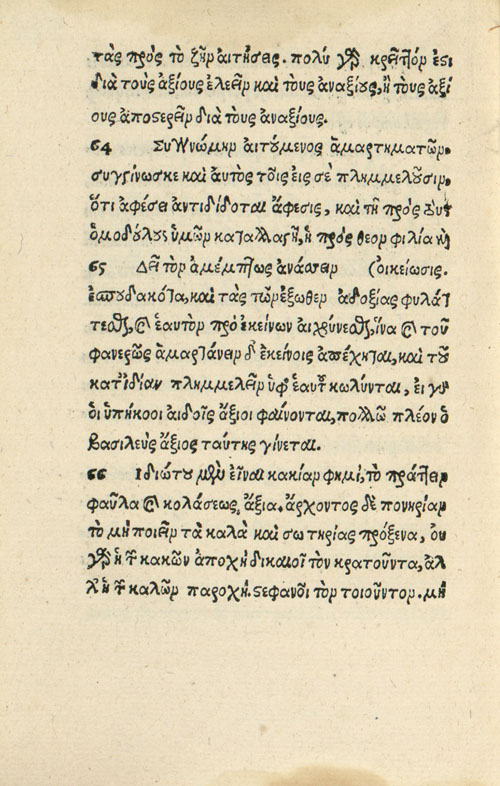 τὰς πρὸς τὸ ζῆν αἰτήσεις. πολὺ γὰρ κρεῖττόν ἐστι
διὰ τοὺς ἀξίους ἐλεεῖν καὶ τοὺς ἀναξίους, ἢ τοὺς ἀξί
ους ἀποστερεῖν διὰ τοὺς ἀναξίους.
64 Συγγνώμην αἰτούμενος ἁμαρτημάτων,
συγγίνωσκε καὶ αὐτὸς τοῖς εἰς σὲ πλημμελοῦσιν,
ὅτι ἀφέσει ἀντιδίδοται ἄφεσις, καὶ τῇ πρὸς τοὺς
ὁμοδούλους ἡμῶν καταλλαγῇ, ἡ πρὸς θεὸν φιλία καὶ
65 Δεῖ τὸν ἀμέμπτως ἀνάσσειν (οἰκείωσις.
ἐσπουδακότα, καὶ τὰς τῶν ἔξωθεν ἀδοξίας φυλάτ
τεσθαι, καὶ ἑαυτὸν πρὸ ἐκείνων αἰσχύνεσθαι, ἵνα καὶ τοῦ
φανερῶς ἁμαρτάνειν δι' ἐκείνοις ἀπέχηται, καὶ τοῦ
κατ' ἰδίαν πλημμελεῖν ὑφ' ἑαυτοῦ κωλύηται, εἰ γὰρ
οἱ ὑπήκοοι αἰδοῖς ἄξιοι φαίνονται, πολλῷ πλέον ὁ
βασιλεὺς ἄξιος ταύτης γίνεται.
66 Ιδιώτου μὲν εἶναι κακίαν φημί, τὸ πράττειν
φαῦλα καὶ κολάσεως ἄξια. ἄρχοντος δὲ πονηρίαν
τὸ μὴ ποιεῖν τὰ καλὰ καὶ σωτηρίας πρόξενα, οὐ
γὰρ ἡ τῶν κακῶν ἀποχὴ δικαιοῖ τὸν κρατοῦντα, ἀλ
λ' ἡ τῶν καλῶν παροχή, στεφανοῖ τὸν τοιοῦτον. μὴ